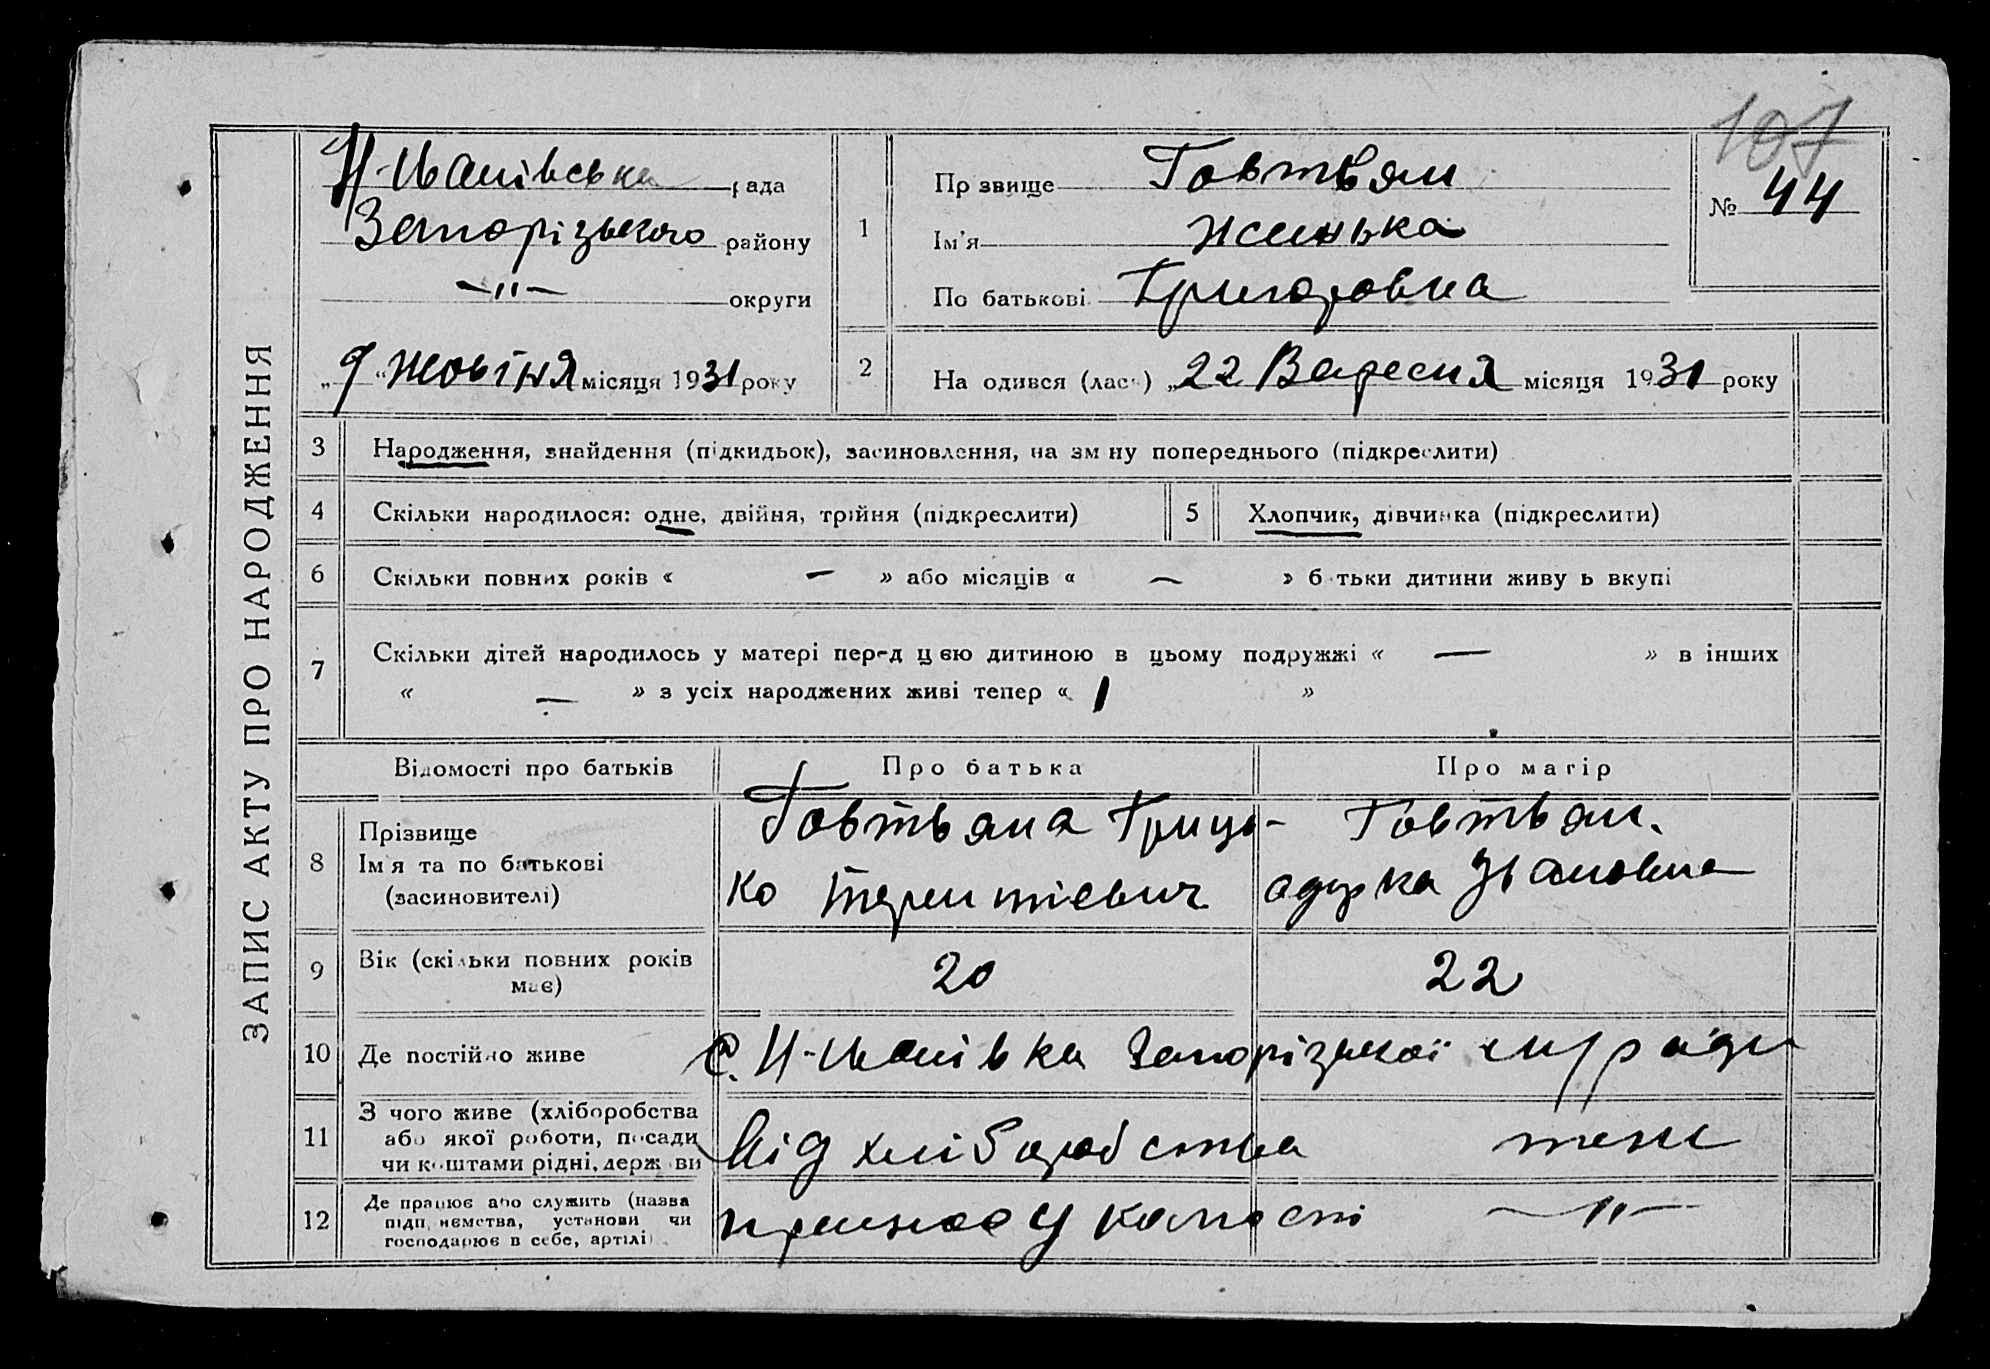 107
Н-Іванівська рада
Запорізького району
-"- округи
„9“ жовтня місяця 1931 року
1
Прізвище Говтвян
Ім'я женька
По батькові Григоровна
№ 44
2
На одився (лась) „22 Вересня місяця 1931 року
ЗАПИС АКТУ ПРО НАРОДЖЕННЯ
3 Народження, знайдення (підкидьок), засиновлення, на зм ну попереднього (підкреслити)
4 Скільки народилося: одне, двійня, трійня (підкреслити) 5 Хлопчик, дівчинка (підкреслити)
6 Скільки повних років « — » або місяців « — » б тьки дитини живу ь вкупі
7 Скільки дітей народилось у матері перед цією дитиною в цьому подружжі « — » в інших
« — » з усіх народжених живі тепер « 1 »
Відомості про батьків Про батька Про матір
8 Прізвище
Ім'я та по батькові
(засиновителі)
Говтвяна Гриць-
ко терентієвич
Говтвян.
одарка Івановна
9 Вік (скільки повних років
має)
20 22
10 Де постійно живе с. Н-Іванівка Запорізької ради
11 З чого живе (хліборобства
або якої роботи, посади
чи коштами рідні, держ ви
Від хліборобства теж
12 Де працює або служить (назва
підп иємства, установи чи
господарює в себе, артілі)
працює у колгоспі -"-